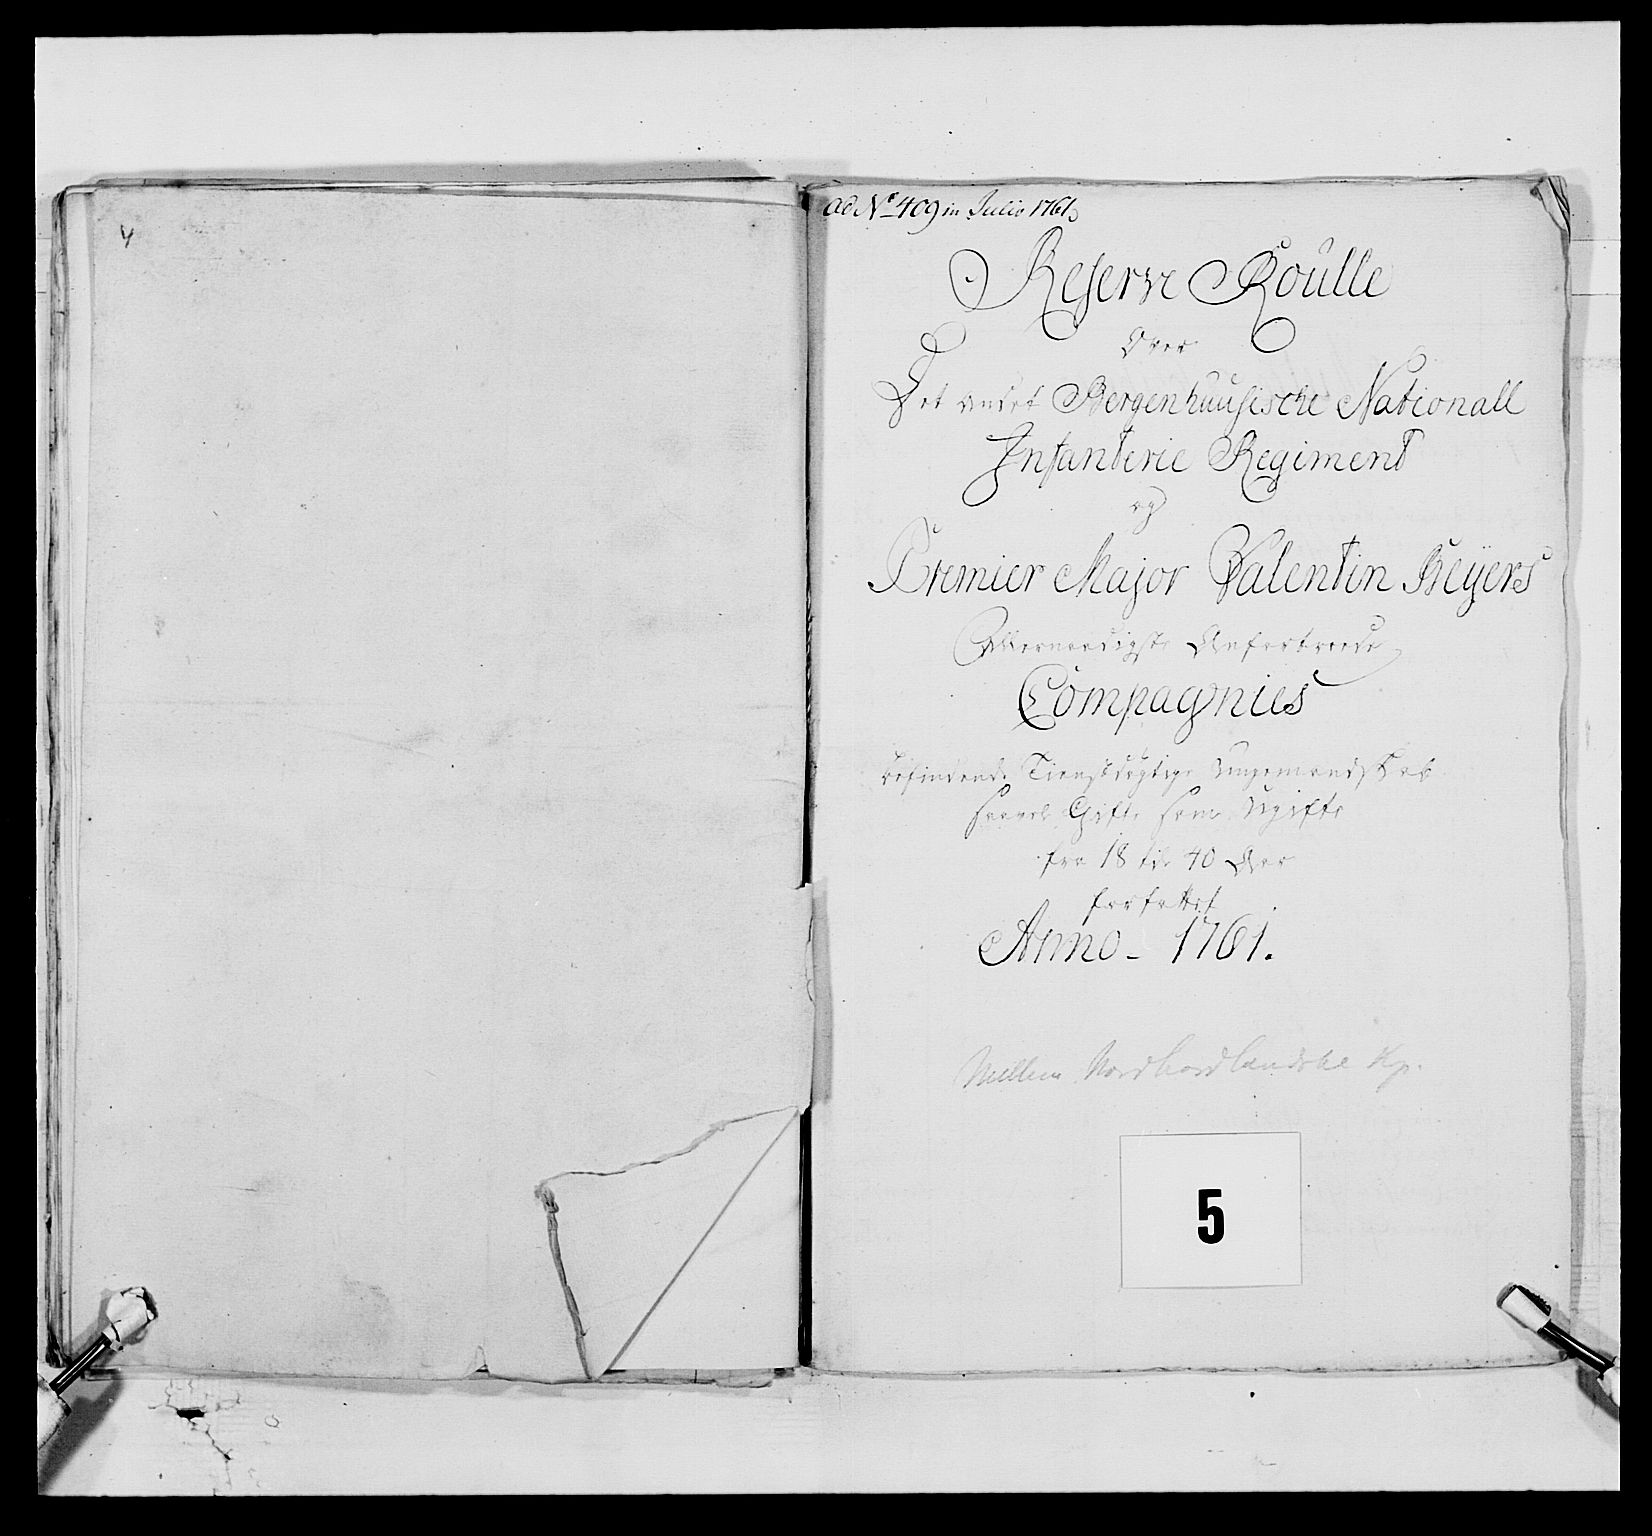 4
ad No 409 in Julio 1761.
Reserve Roülle
Over
Det andet Bergenhuusische Nationall
Infanterie Regiment
og
Premier Major Valentin Beÿers
Allernaadigst Anfortroede
Compagnies
befindende Tienstdygtige Ungemandskab
saavel Gifte som Ugifte
fra 18 til 40 Aar
forfattet
Anno - 1761.
Mellem Nordhordlandske Kp.
5